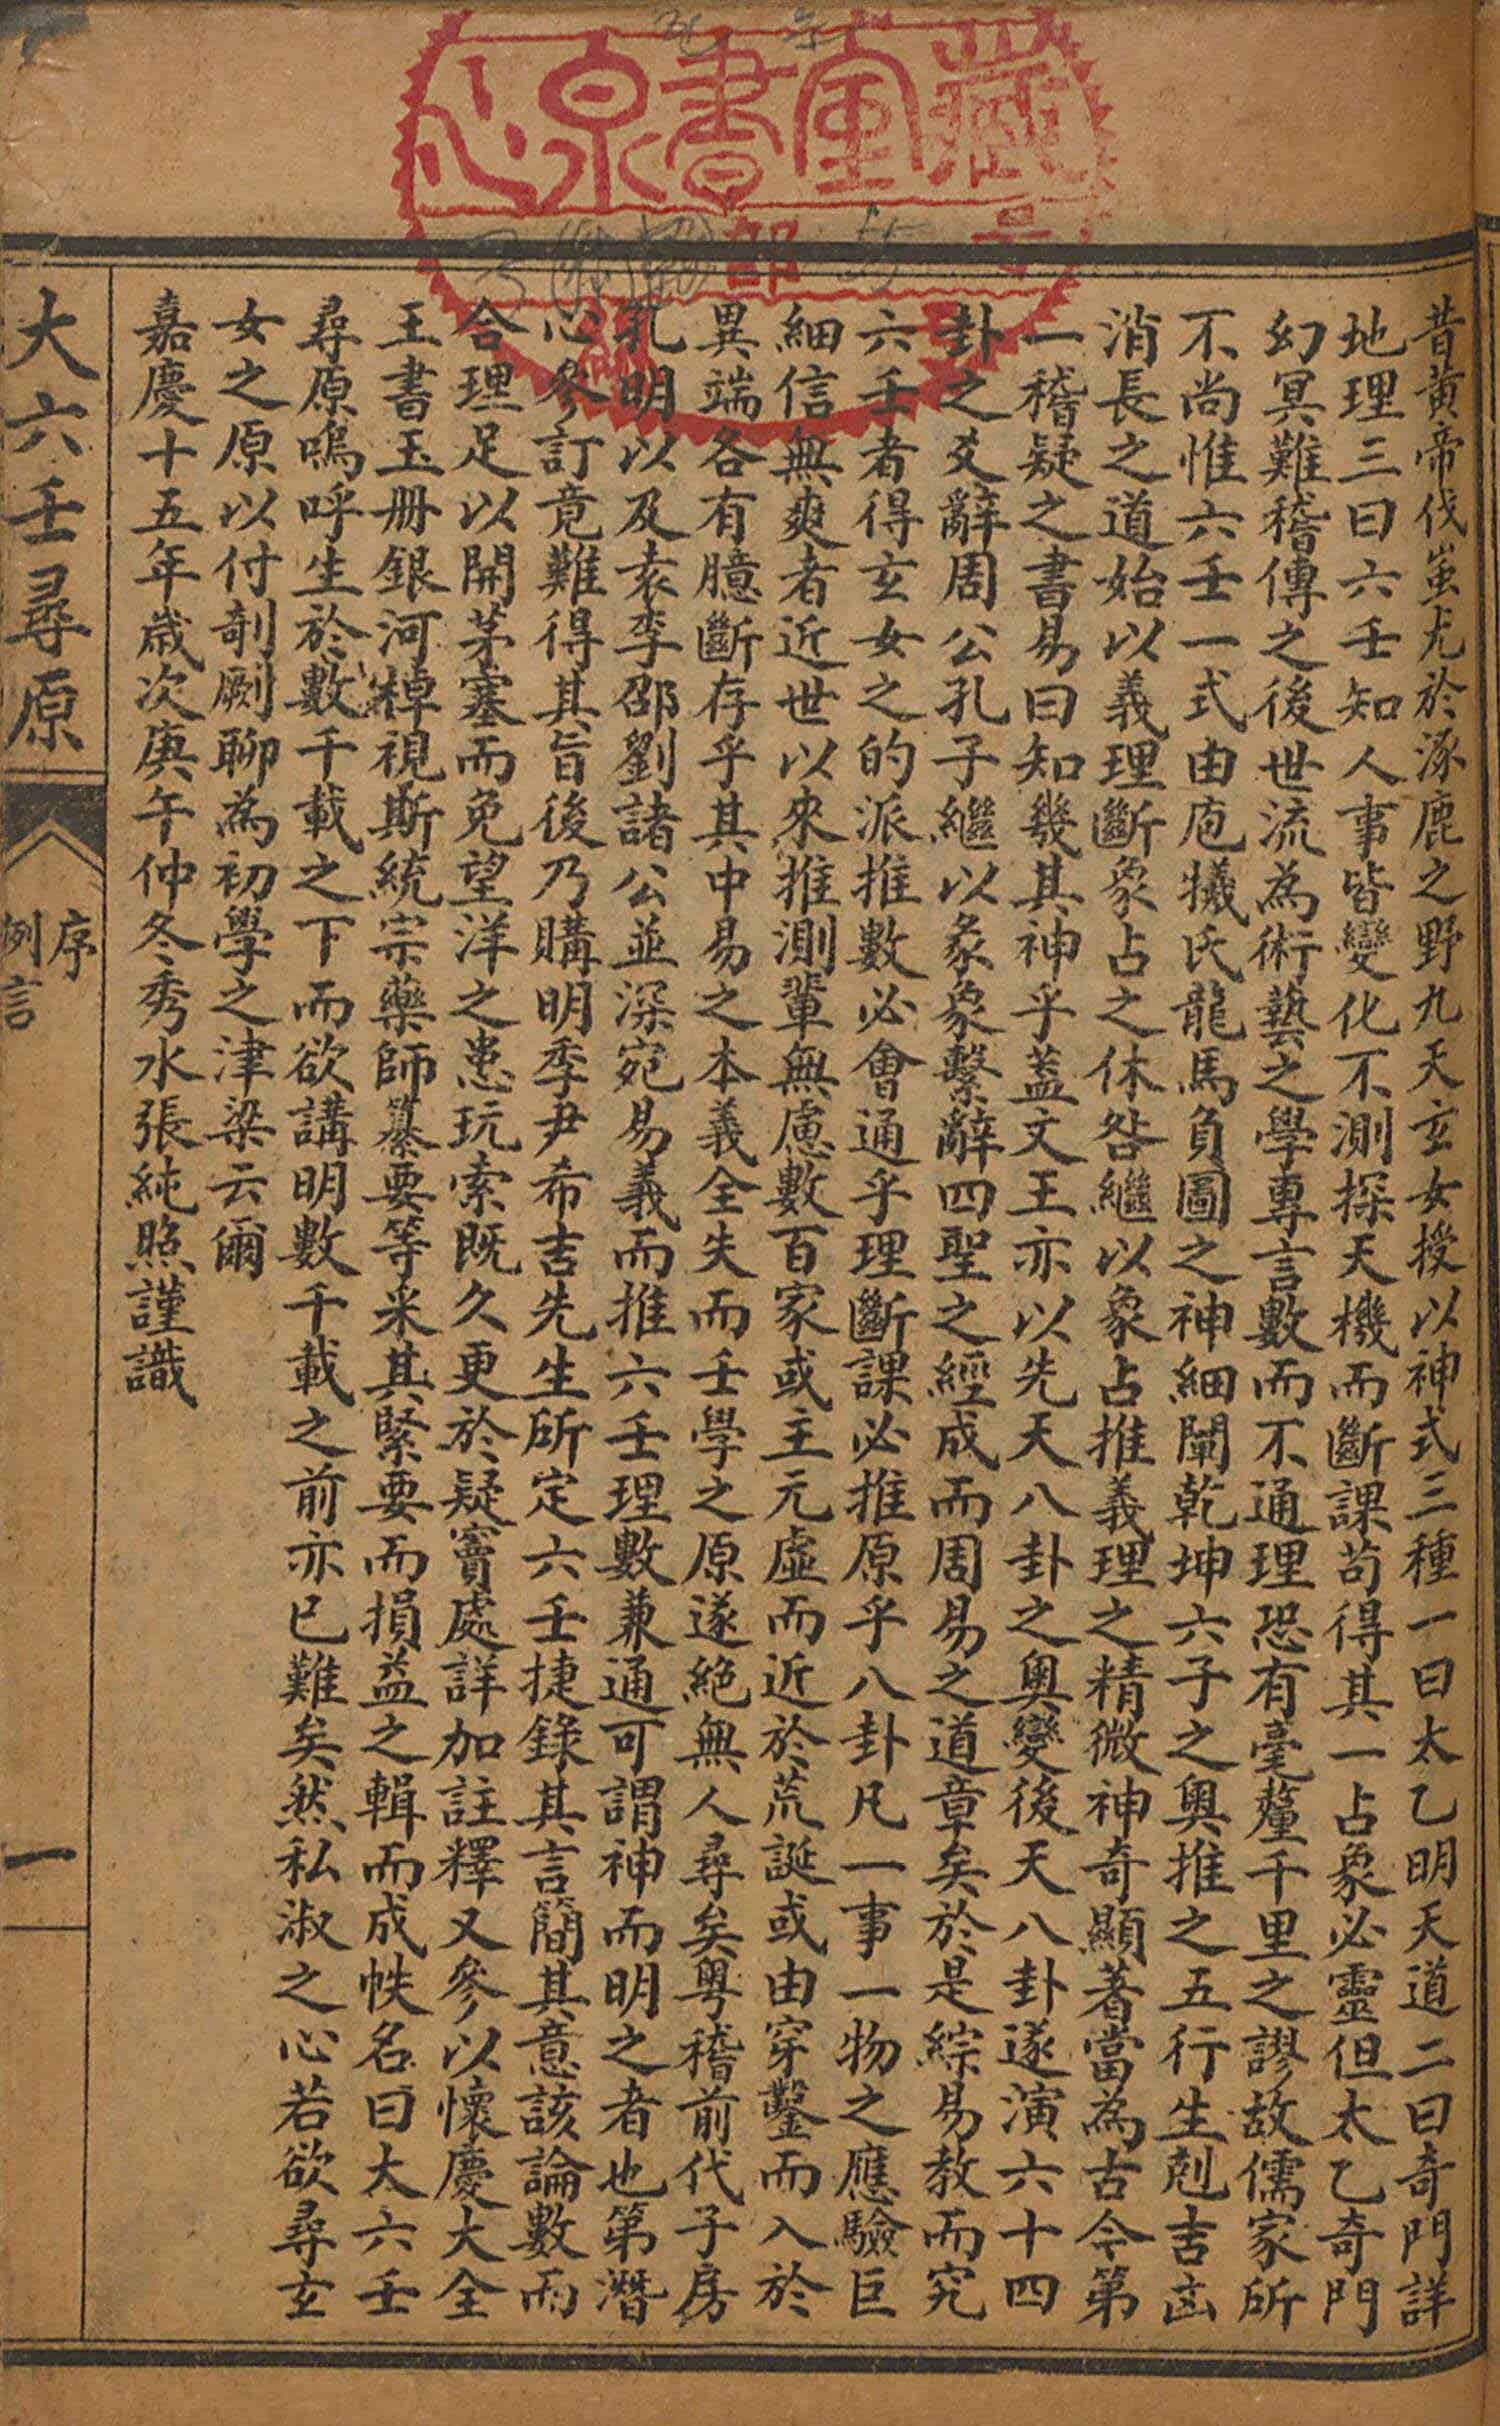 昔黃帝伐蚩尤於涿鹿之野九天玄女授以神式三種一曰太乙明天道二曰奇門詳
地理三曰六壬知人事皆變化不測探天機而斷課苟得其一占象必靈但太乙奇門
幻冥難稽傳之後世流為術藝之學專言數而不通理恐有毫釐千里之謬故儒家所
不尚惟六壬一式由庖犧氏龍馬負圖之神細闡乾坤六子之奧推之五行生剋吉凶
消長之道始以義理斷象占之休咎繼以象占推義理之精微神奇顯著當為古今第
一稽疑之書易曰知幾其神乎蓋文王亦以先天八卦之奧變後天八卦遂演六十四
卦之爻辭周公孔子繼以彖象繫辭四聖之經成而周易之道章矣於是綜易教而究
六壬者得玄女之的派推數必會通乎理斷課必推原乎八卦凡一事一物之應驗巨
細信無爽者近世以來推測輩無慮數百家或主元虛而近於荒誕或由穿鑿而入於
異端各有臆斷存乎其中易之本義全失而壬學之原遂絕無人尋矣粵稽前代子房
孔明以及袁李邵劉諸公並深宛易義而推六壬理數兼通可謂神而明之者也第潛
心參訂竟難得其旨後乃購明季尹希吉先生所定六壬捷錄其言簡其意該論數而
合理足以開茅塞而免望洋之患玩索既久更於疑竇處詳加註釋又參以懷慶大全
王書玉册銀河棹視斯統宗藥師纂要等采其緊要而損益之輯而成帙名曰大六壬
尋原嗚呼生於數千載之下而欲講明數千載之前亦已難矣然私淑之心若欲尋玄
女之原以付剞劂聊為初學之津梁云爾
嘉慶十五年歲次庚午仲冬秀水張純照謹識
大六壬尋原
序
例言
一
心泉書室藏
部
號